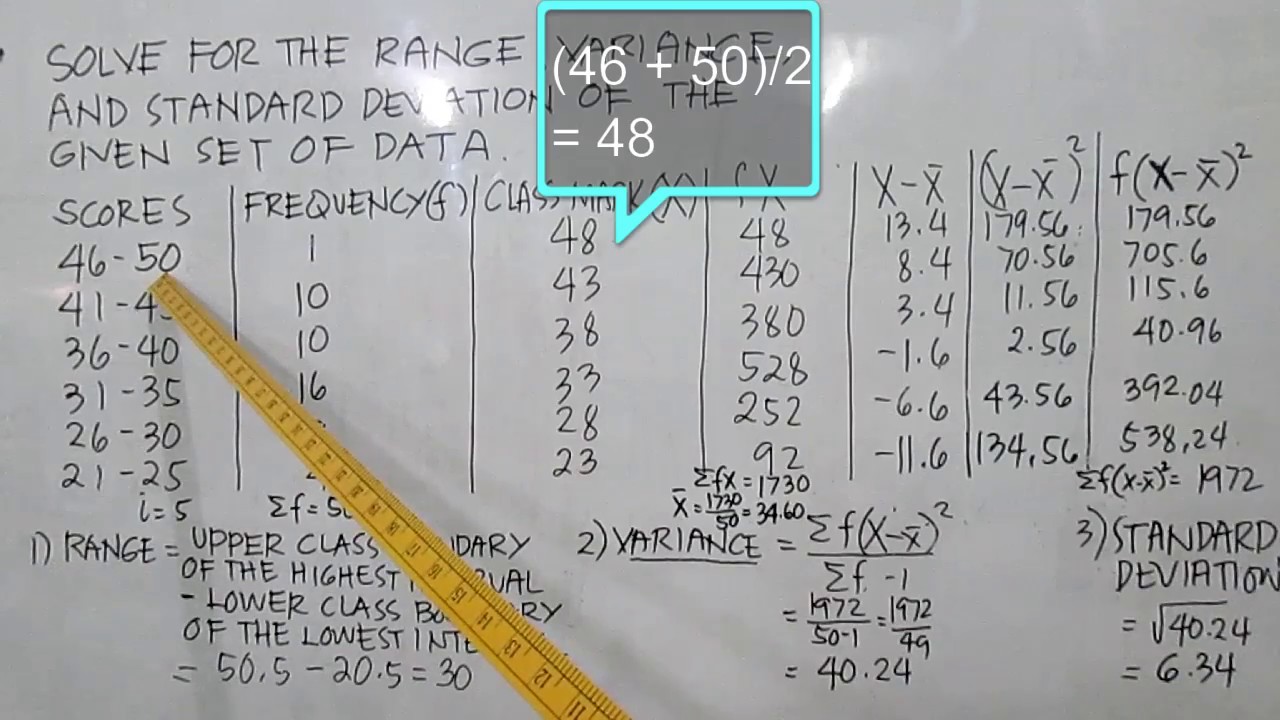 (46 + 50)/2
= 48
SOLVE FOR THE RANGE, VARIANCE,
AND STANDARD DEVIATION OF THE
GIVEN SET OF DATA.
SCORES FREQUENCY(f) CLASS MARK(X) fX X-X̄ (X-X̄)² f(X-X̄)²
46-50 1 48 48 13.4 179.56 179.56
41-4 10 43 430 8.4 70.56 705.6
36-40 10 38 380 3.4 11.56 115.6
31-35 16 33 528 -1.6 2.56 40.96
26-30 28 252 -6.6 43.56 392.04
21-25 23 92 -11.6 134.56 538.24
i=5 Σf=50 Σfx=1730 Σf(x-x̄)²=1972
X̄=1730/50=34.60
1) RANGE = UPPER CLASS BOUNDARY
OF THE HIGHEST INTERVAL
- LOWER CLASS BOUNDARY
OF THE LOWEST INTE
= 50.5-20.5=30
2) VARIANCE = Σf(X-X̄)²/Σf-1
= 1972/50-1 = 1972/49
= 40.24
3) STANDARD
DEVIATION
= √40.24
= 6.34